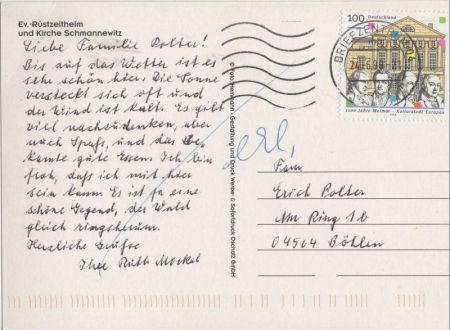 Ev.-Rüstzeitheim
und Kirche Schmannewitz
Liebe Familie Polter!
Bis auf das Wetter ist es
sehr schön hier. Die Sonne
versteckt sich oft und
der Wind ist kalt. Es gibt
viel nachzudenken, aber
auch Spaß, und das be-
kannte gute Essen. Ich bin
froh, daß ich mit hier
sein kann. Es ist ja eine
schöne Gegend, der Wald
gleich ringsherum.
Herzliche Grüße
Ihre Ruth Möckel
© Foto · Gestaltung und Druck Werbe- & Sofortdruck Oschatz GmbH
100 Deutschland
1100 Jahre Weimar Kulturstadt Europas
BRIEFZENT
erl.
Fam
Erich Polter
Am Ring 1b
04564 Böhlen